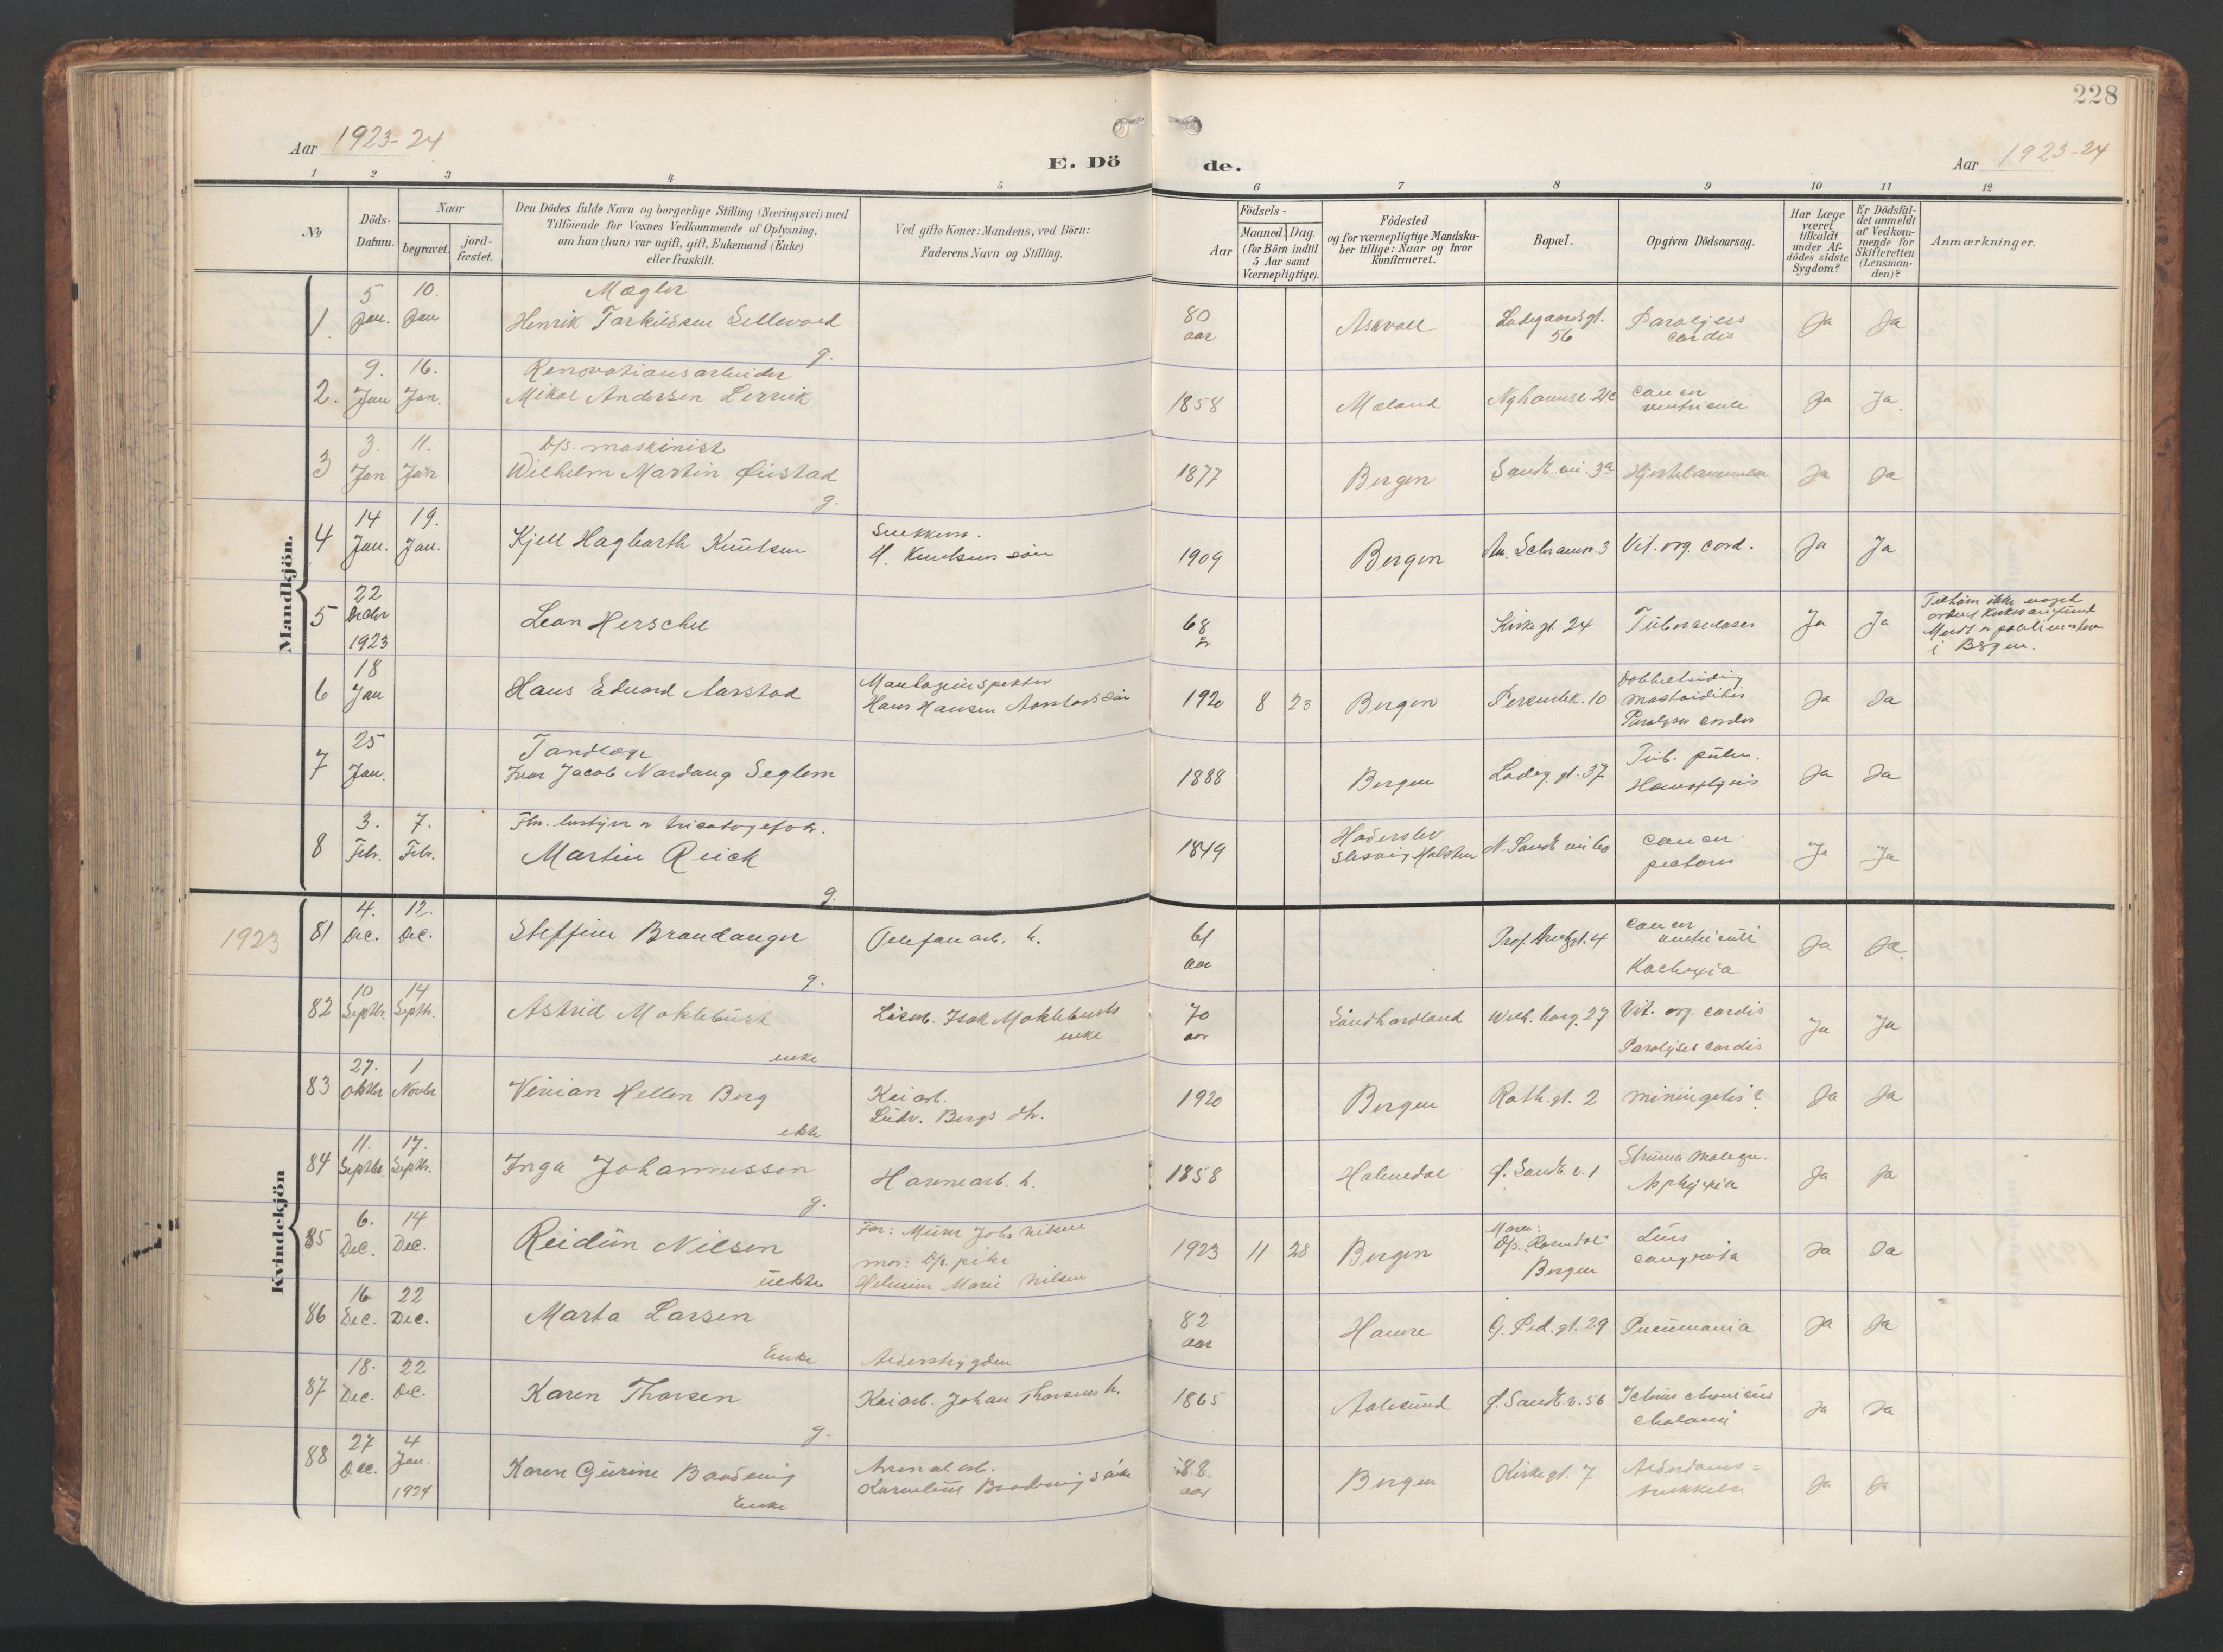 228
Aar 1923-24
E. Dö
de.
Aar 1923-24
1 2 3 4 5 6 7 8 9 10 11 12
№
Döds-Datum.
Naar
begravet.
jord-fæstet.
Den Dödes fulde Navn og borgerlige Stilling (Næringsvei) med
Tilföiende for Voxnes Vedkommende af Oplysning,
om han (hun) var ugift, gift, Enkemand (Enke)
eller fraskilt.
Ved gifte Koner: Mandens, ved Börn:
Faderens Navn og Stilling.
Födsels-
Aar
Maaned. Dag.
(for Börn indtil
5 Aar samt
Værnepligtige).
Födested
og for værnepligtige Mandska-
ber tillige: Naar og hvor
Konfirmeret.
Bopæl.
Opgiven Dödsaarsag.
Har Læge
været
tilkaldt
under Af-
dödes sidste
Sygdom?
Er Dödsfal-
det anmeldt
af Vedkom-
mende for
Skifteretten
(Lensman-
den)?
Anmærkninger.
Mandkjön.
1. 5 Jan. 10. Jan Mægler
Henrik Torkildsen Sellevold g. 80 aar Askvoll Ladegaardsgt. 56 Paralyses cordis Ja Ja
2. 9. Jan 16. Jan. Renovationsarbeider
Mikal Andersen Lervik 1858 Mæland Nyhavnsv. cancer ventriculi Ja Ja
3 3. Jan 11. Jan D/s. maskinist
Wilhelm Martin g. 1877 Bergen Sandv. vei. 3a Ja Ja
4 14 Jan. 19. Jan. Kjell Hagbarth Knutsen Snekkerm.
H. Knutsens sön 1909 Bergen 3 Vit. org. cord. Ja Ja
5 22 1923 Leon Herschel 68 år Kirkegt 24 Tuberculoses Ja Ja ikke noget
i Bergen.
6 18 Jan Hans Eduard Aarstad
Hans Hansen Aarstads sön 1920 8 23 Bergen 10 Dobbeltsidig
mastoiditis
Paralyses cordis Ja Ja
7 25 Jan. Tandlæge
Ivar Jacob Nordang Seglem 1888 Bergen Ladeg. gt. 37 Tub. pulm.
Ja Ja
8 3. Febr. 7. Febr. Martin Reick g. 1849 Haderslev
Slesvig Holsten N. Sandv. vei 60 cancer
pectoris Ja Ja
Kvindekjön
1923
81 4. Dec. 12. Dec. Steffine Brandanger g. Telefonarb. h. 61 aar cancer
ventriculi
Kachexia Ja Ja.
82 10 Septbr. 14 Septbr. Astrid Moklebust enke Isak Moklebusts
enke 70 aar Söndhordland Wilh. borg. 27 Vit. org. cordis
Paralyses cordis Ja Ja
83 27. Oktbr 1 Novbr Vivian Hellen Berg ekte Kaiarb.
Ludv. Bergs dtr. 1920 Bergen Rothgt. 2 miningetis? Ja Ja
84 11. Septbr. 17. Septbr. Inga Johannessen g. Havnearb. h. 1858 Holmedal Sandv. v. 1 Struma malign.
Asphyxia Ja Ja
85 6. Dec. 14 Dec. Reidun Nilsen uekte Far: Murer Johs Nilsen
mor: D/s. pike
Marie Nilsen 1923 11 28 Bergen Moren:
D/s. Rosendal
Bergen Lues
congenita Ja Ja
86 16 Dec. 22 Dec. Marta Larsen Enke Alderstrygden 82 aar Hamre 29 Pneumonia Ja Ja
87 18. Dec. 22 Dec. Karen Thorsen g. Kaiarb. Johan Thorsens h. 1865 Aalesund Sandv. v. 56 Ictus chronicus
Ja Ja
88 27 Dec. 4 Jan. 1924 Karen Gurine Baadsvig Enke Arsenalarb.
Kornelius 88 aar Bergen Kirkegt. 7 Alderdoms-
svekkelse Ja Ja